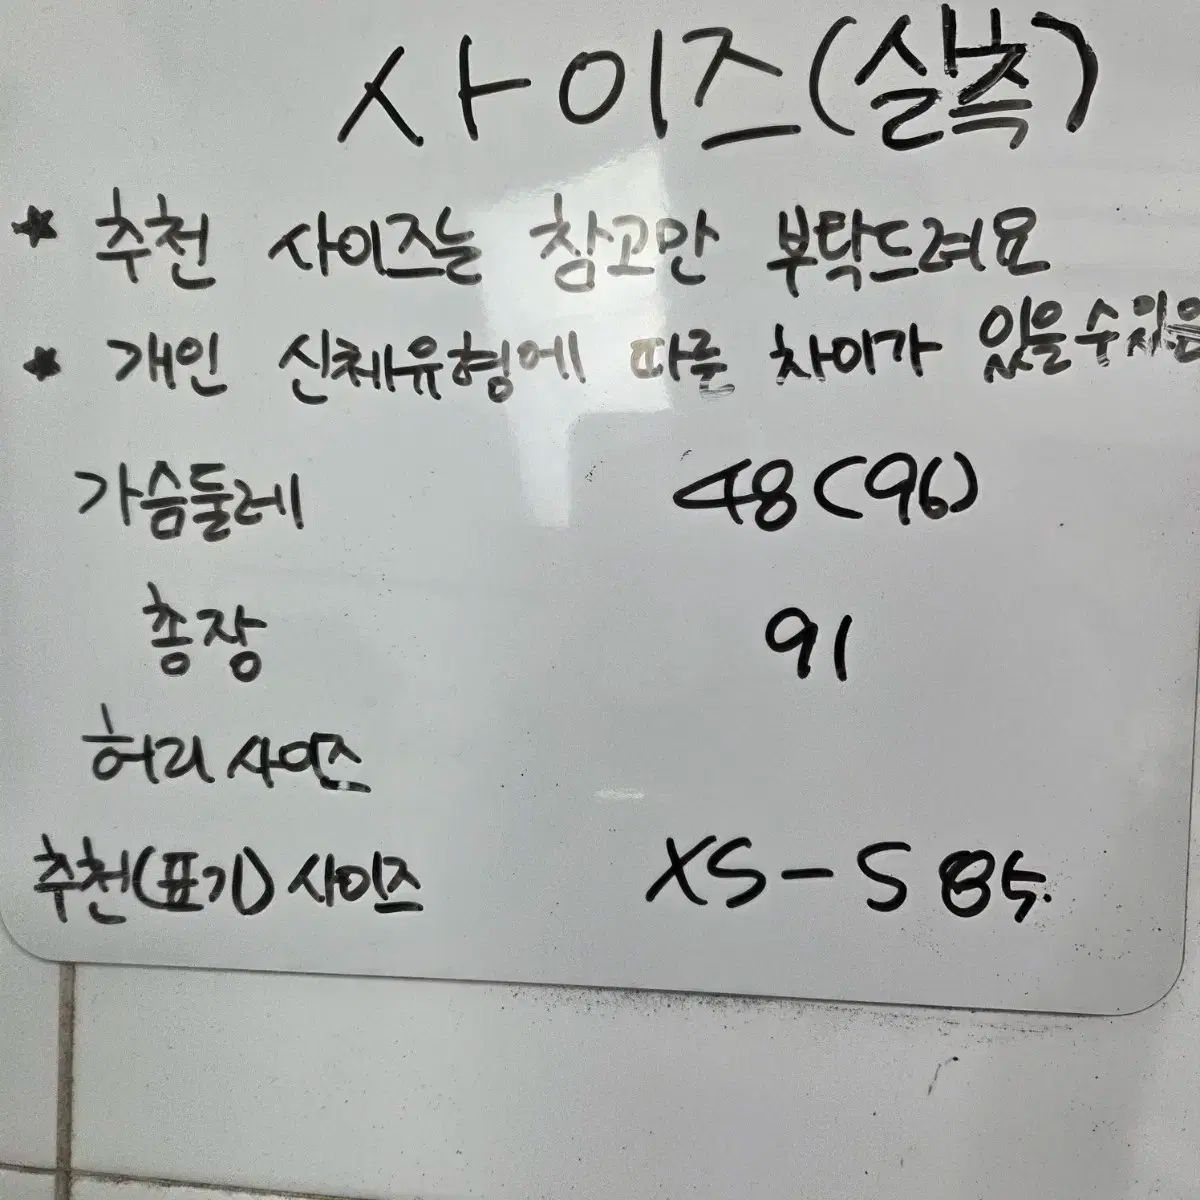 사이즈(실측)
★ 추천 사이즈는 참고만 부탁드려요
★ 개인 신체유형에 따른 차이가 있을수있음
가슴둘레 48(96)
총장 91
허리 사이즈
추천(표기) 사이즈 XS-S 85.